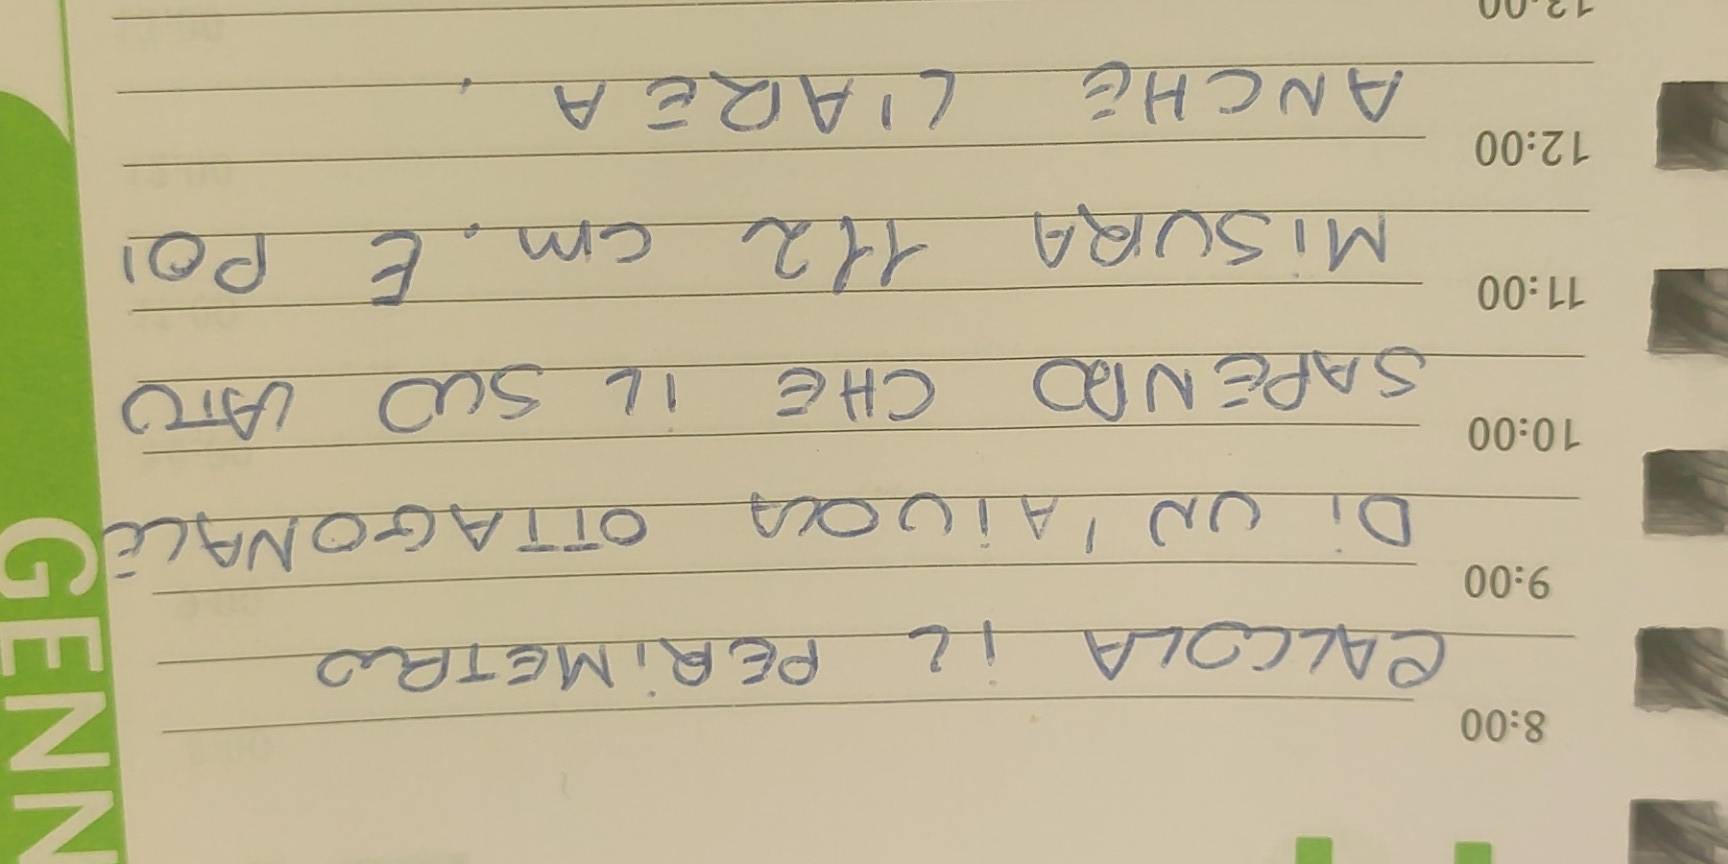 8:00
CALCOLA IL PERIMETRO
9:00
DI UN'AIUOLA OTTAGONALE
10:00
SAPENDO CHE IL SUO LATO
11:00
MISURA 112 cm. E POI
12:00
ANCHE L'AREA.
13:00
GENN